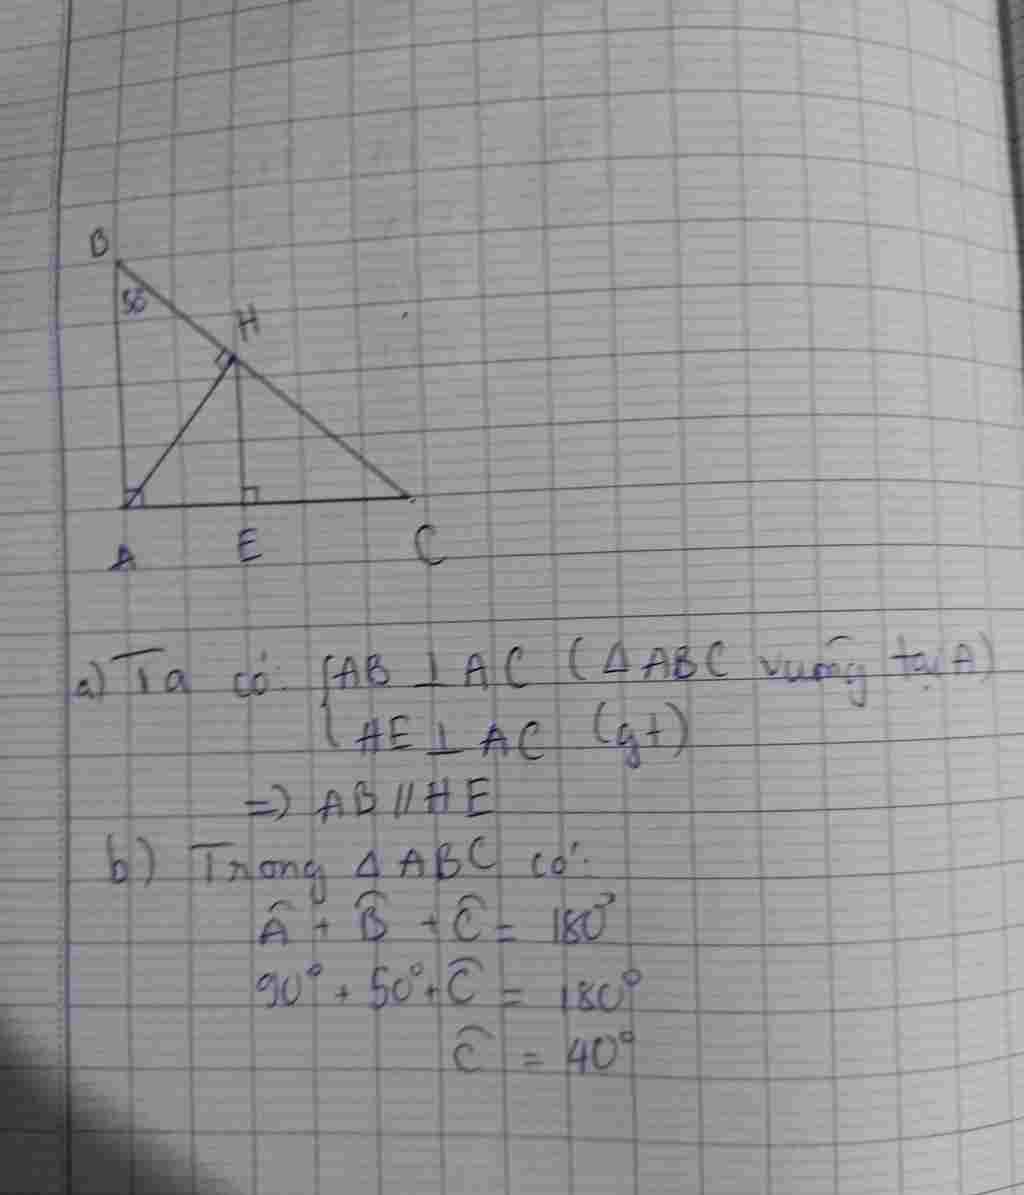 B
50°
H
A E C
a) Ta có: { AB ⊥ AC (Δ ABC vuông tại A)
{ HE ⊥ AC (gt)
=> AB // HE
b) Trong Δ ABC có:
Â + B̂ + Ĉ = 180°
90° + 50° + Ĉ = 180°
Ĉ = 40°